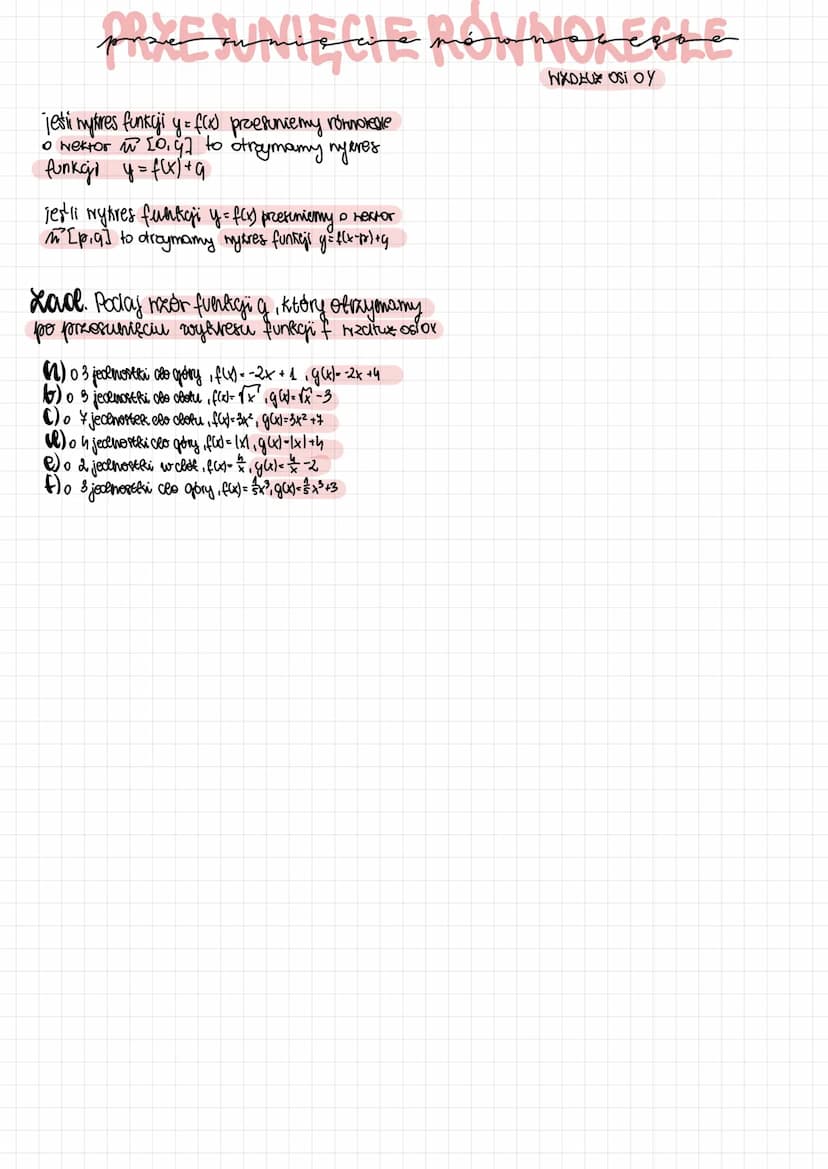 PRZESUNIĘCIE RÓWNOLEGŁE
przesunięcie równoległe
WZDŁUŻ OSI OY
jeśli wykres funkcji y = f(x) przesuniemy równolegle
o wektor w [0,q] to otrzymamy wykres
funkcji y = f(x)+q
jeśli wykres funkcji y = f(x) przesuniemy o wektor
w [p,q] to otrzymamy wykres funkcji y = f(x-p)+q
Zad. Podaj wzór funkcji g, który otrzymamy
po przesunięciu wykresu funkcji f wzdłuż osi OY
a) o 3 jednostki do góry, f(x) = -2x + 1, g(x) = -2x +4
b) o 3 jednostki do dołu, f(x) = √x, g(x) = √x -3
c) o 7 jednostek do dołu, f(x)=3x², g(x)=3x²+7
d) o 4 jednostki do góry, f(x) = |x|, g(x) = |x|+4
e) o 2 jednostki w dół, f(x) = 4/x, g(x) = 4/x -2
f) o 3 jednostki do góry, f(x) = 1/5x³, g(x) = 1/5x³+3